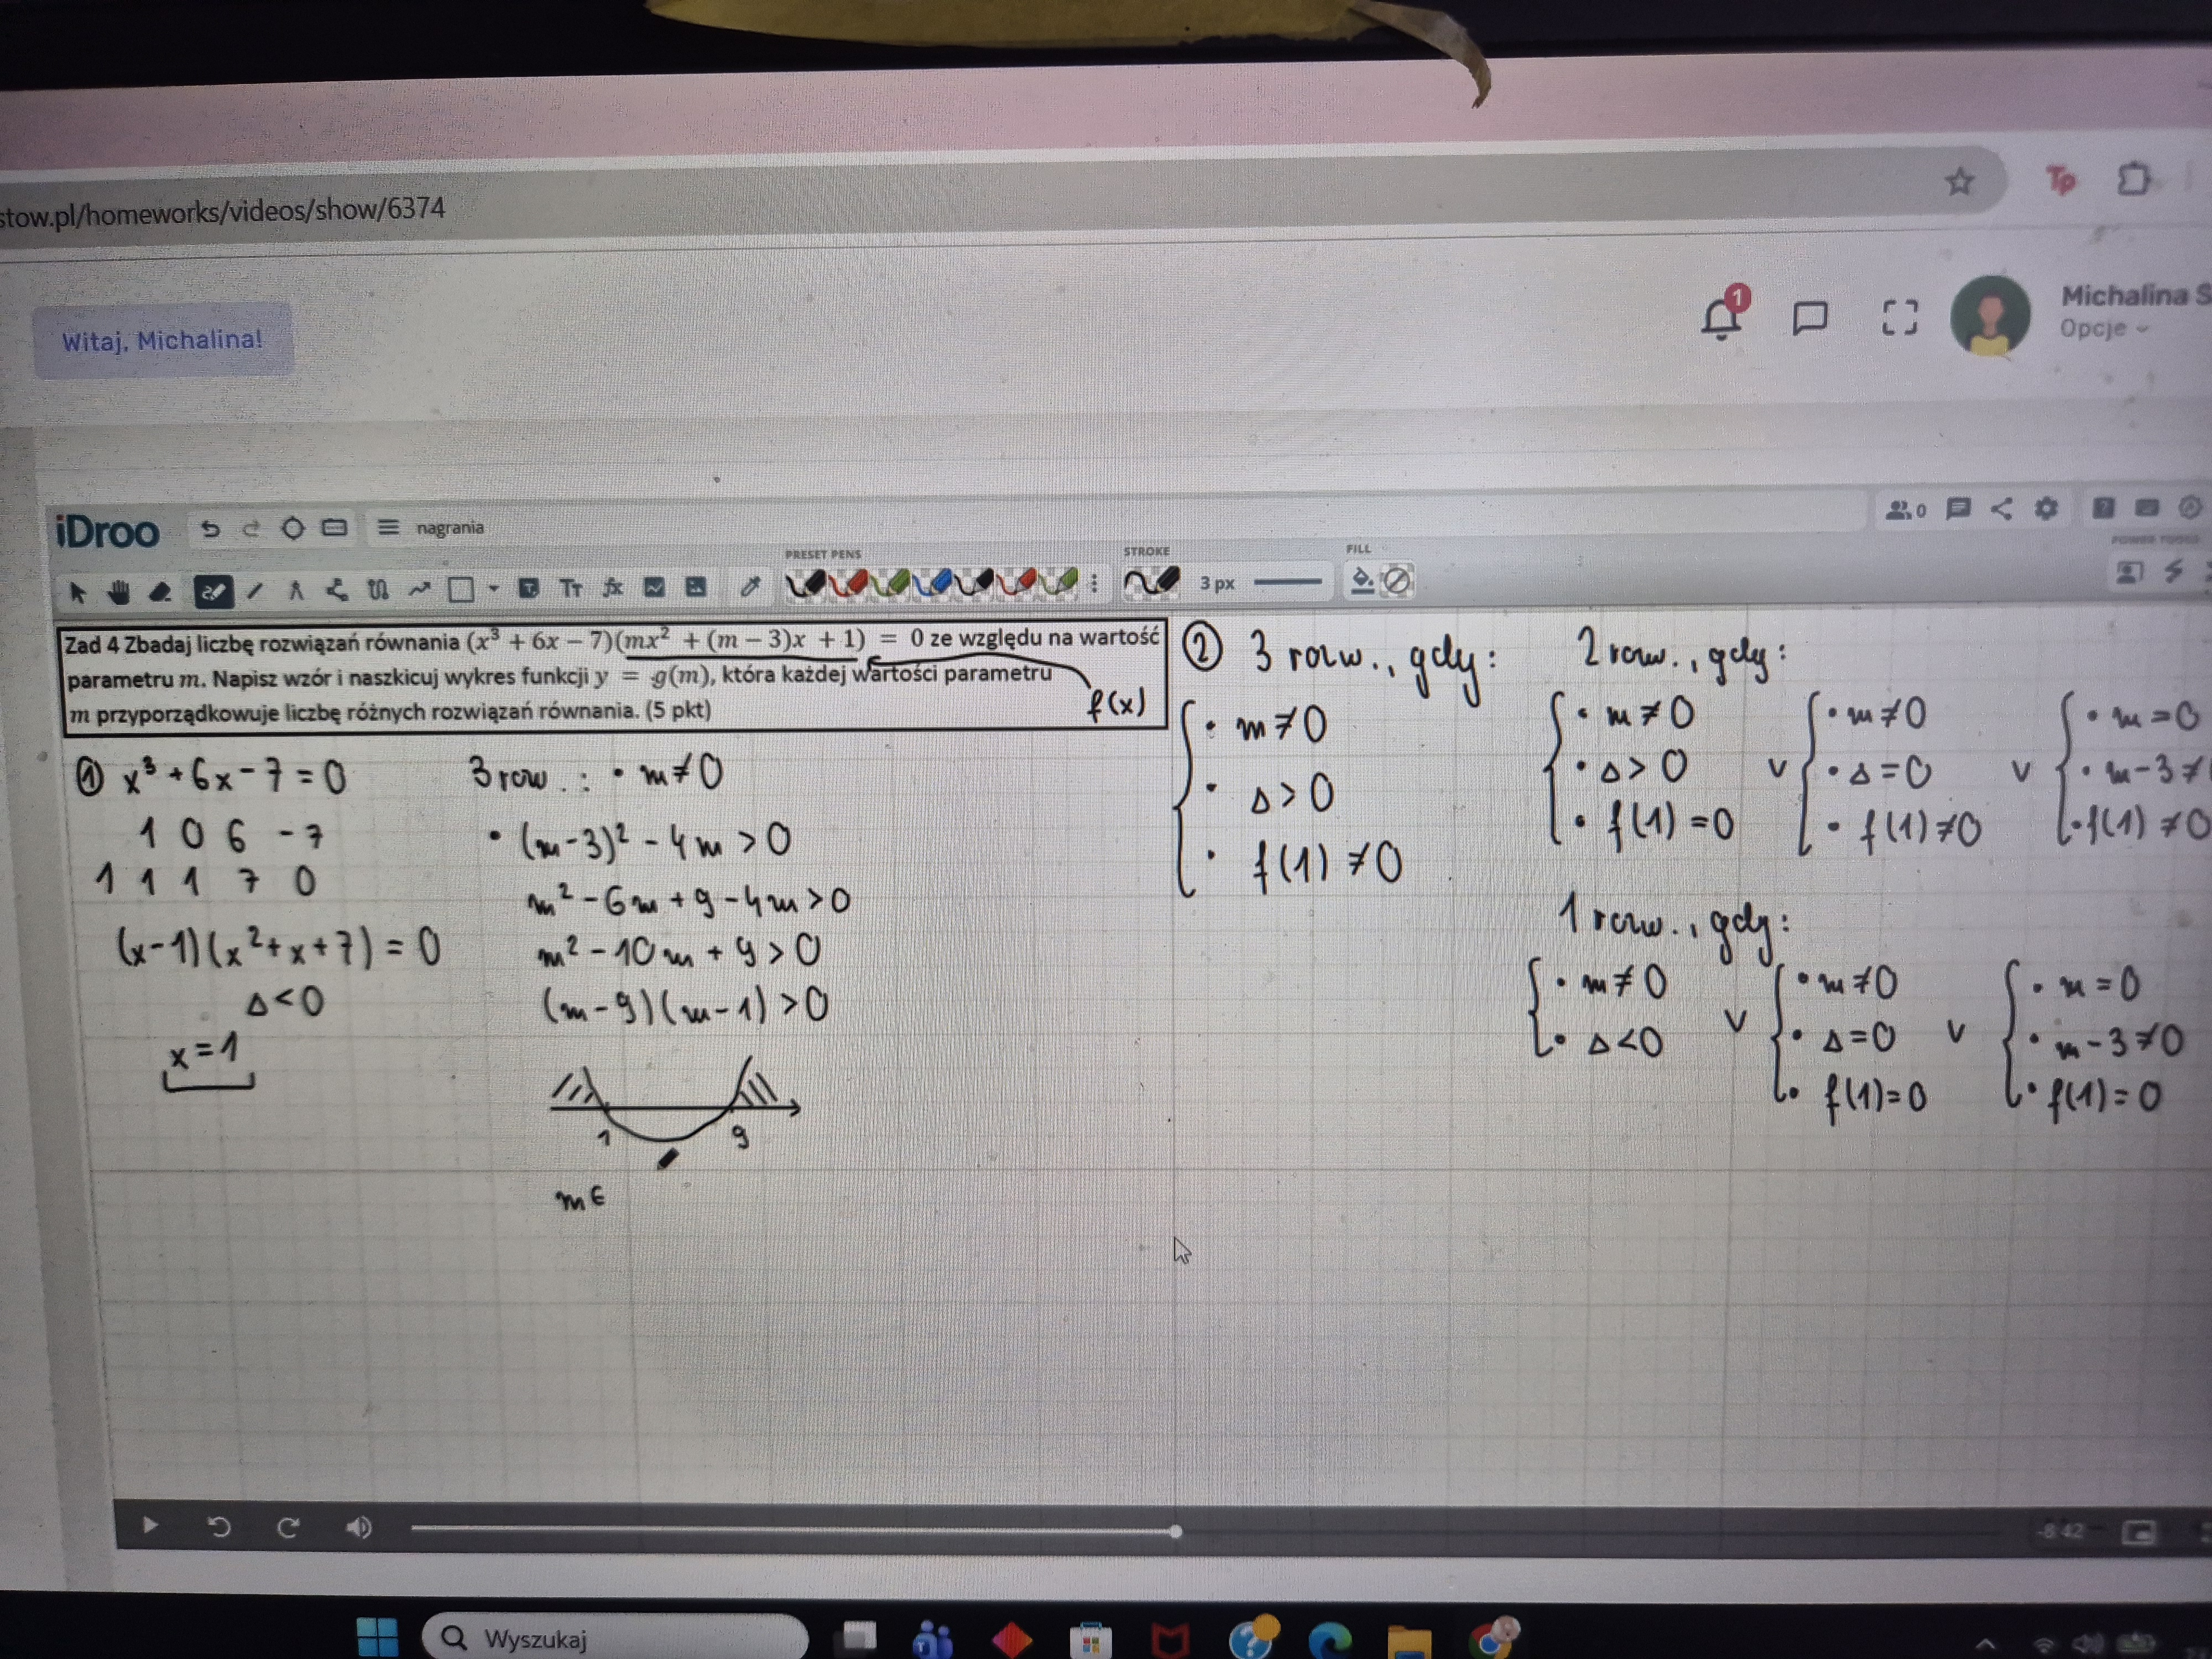 stow.pl/homeworks/videos/show/6374
Tp
1
Witaj, Michalina!
Michalina S
Opcje
iDroo
nagrania
0
PRESET PENS
STROKE
FILL
POWER TOOLS
Tт
fx
3 px
Zad 4 Zbadaj liczbę rozwiązań równania (x³ + 6x − 7)(mx² + (m − 3)x + 1) = 0 ze względu na wartość
parametru m. Napisz wzór i naszkicuj wykres funkcji y = g(m), która każdej wartości parametru
m przyporządkowuje liczbę różnych rozwiązań równania. (5 pkt)
f(x)
① x³ + 6x − 7 = 0
1 0 6 −7
1 1 1 7 0
(x−1)(x²+x+7) = 0
Δ<0
x=1
3 row.: • m≠0
• (m−3)² − 4m > 0
m² − 6m + 9 − 4m > 0
m² − 10m + 9 > 0
(m−9)(m−1) > 0
1 9
m∈
② 3 rozw., gdy:
• m≠0
• Δ>0
• f(1)≠0
2 rozw., gdy:
• m≠0
• Δ>0
• f(1)=0
v
• m≠0
• Δ=0
• f(1)≠0
v
• m=0
• m−3≠
• f(1)≠0
1 rozw., gdy:
• m≠0
• Δ<0
v
• m≠0
• Δ=0
• f(1)=0
v
• m=0
• m−3≠0
• f(1)=0
-8:42
Wyszukaj